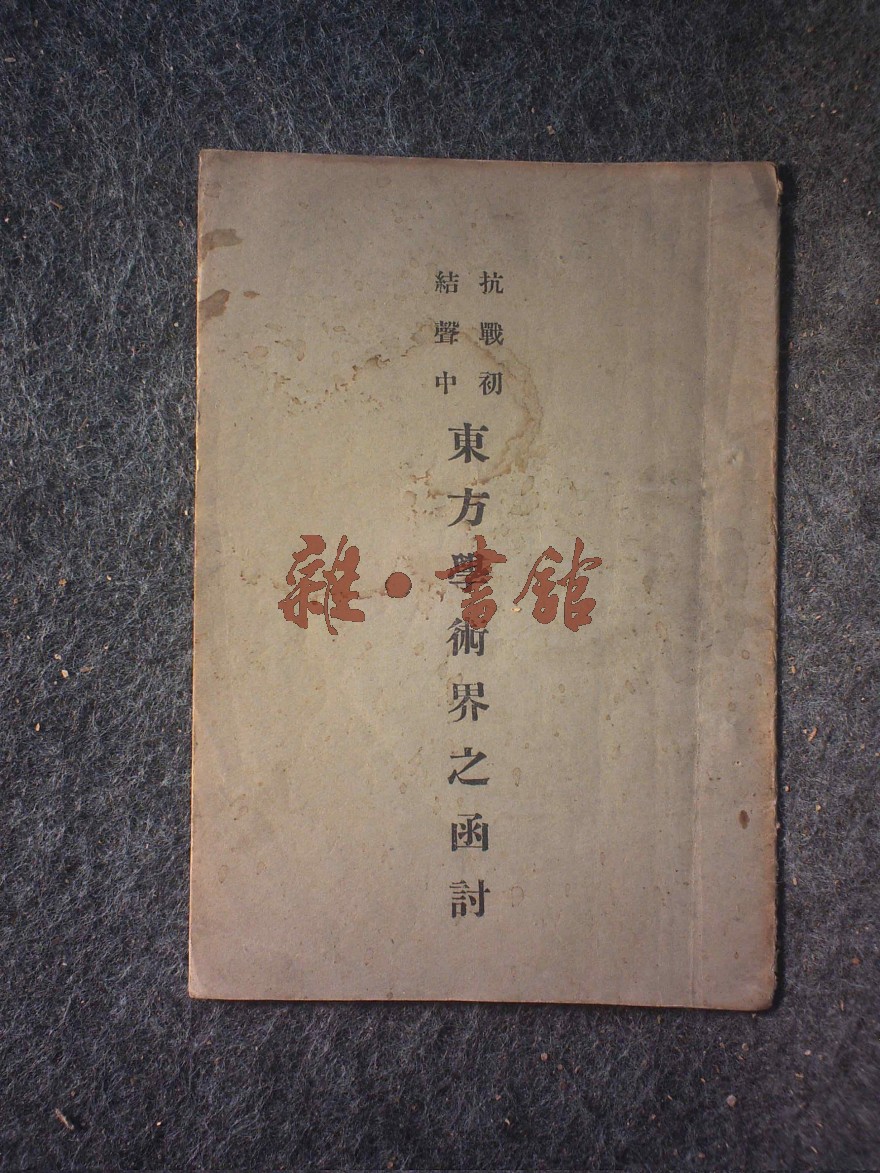 抗戰初
結聲中
東方學術界之函討
雜·書館